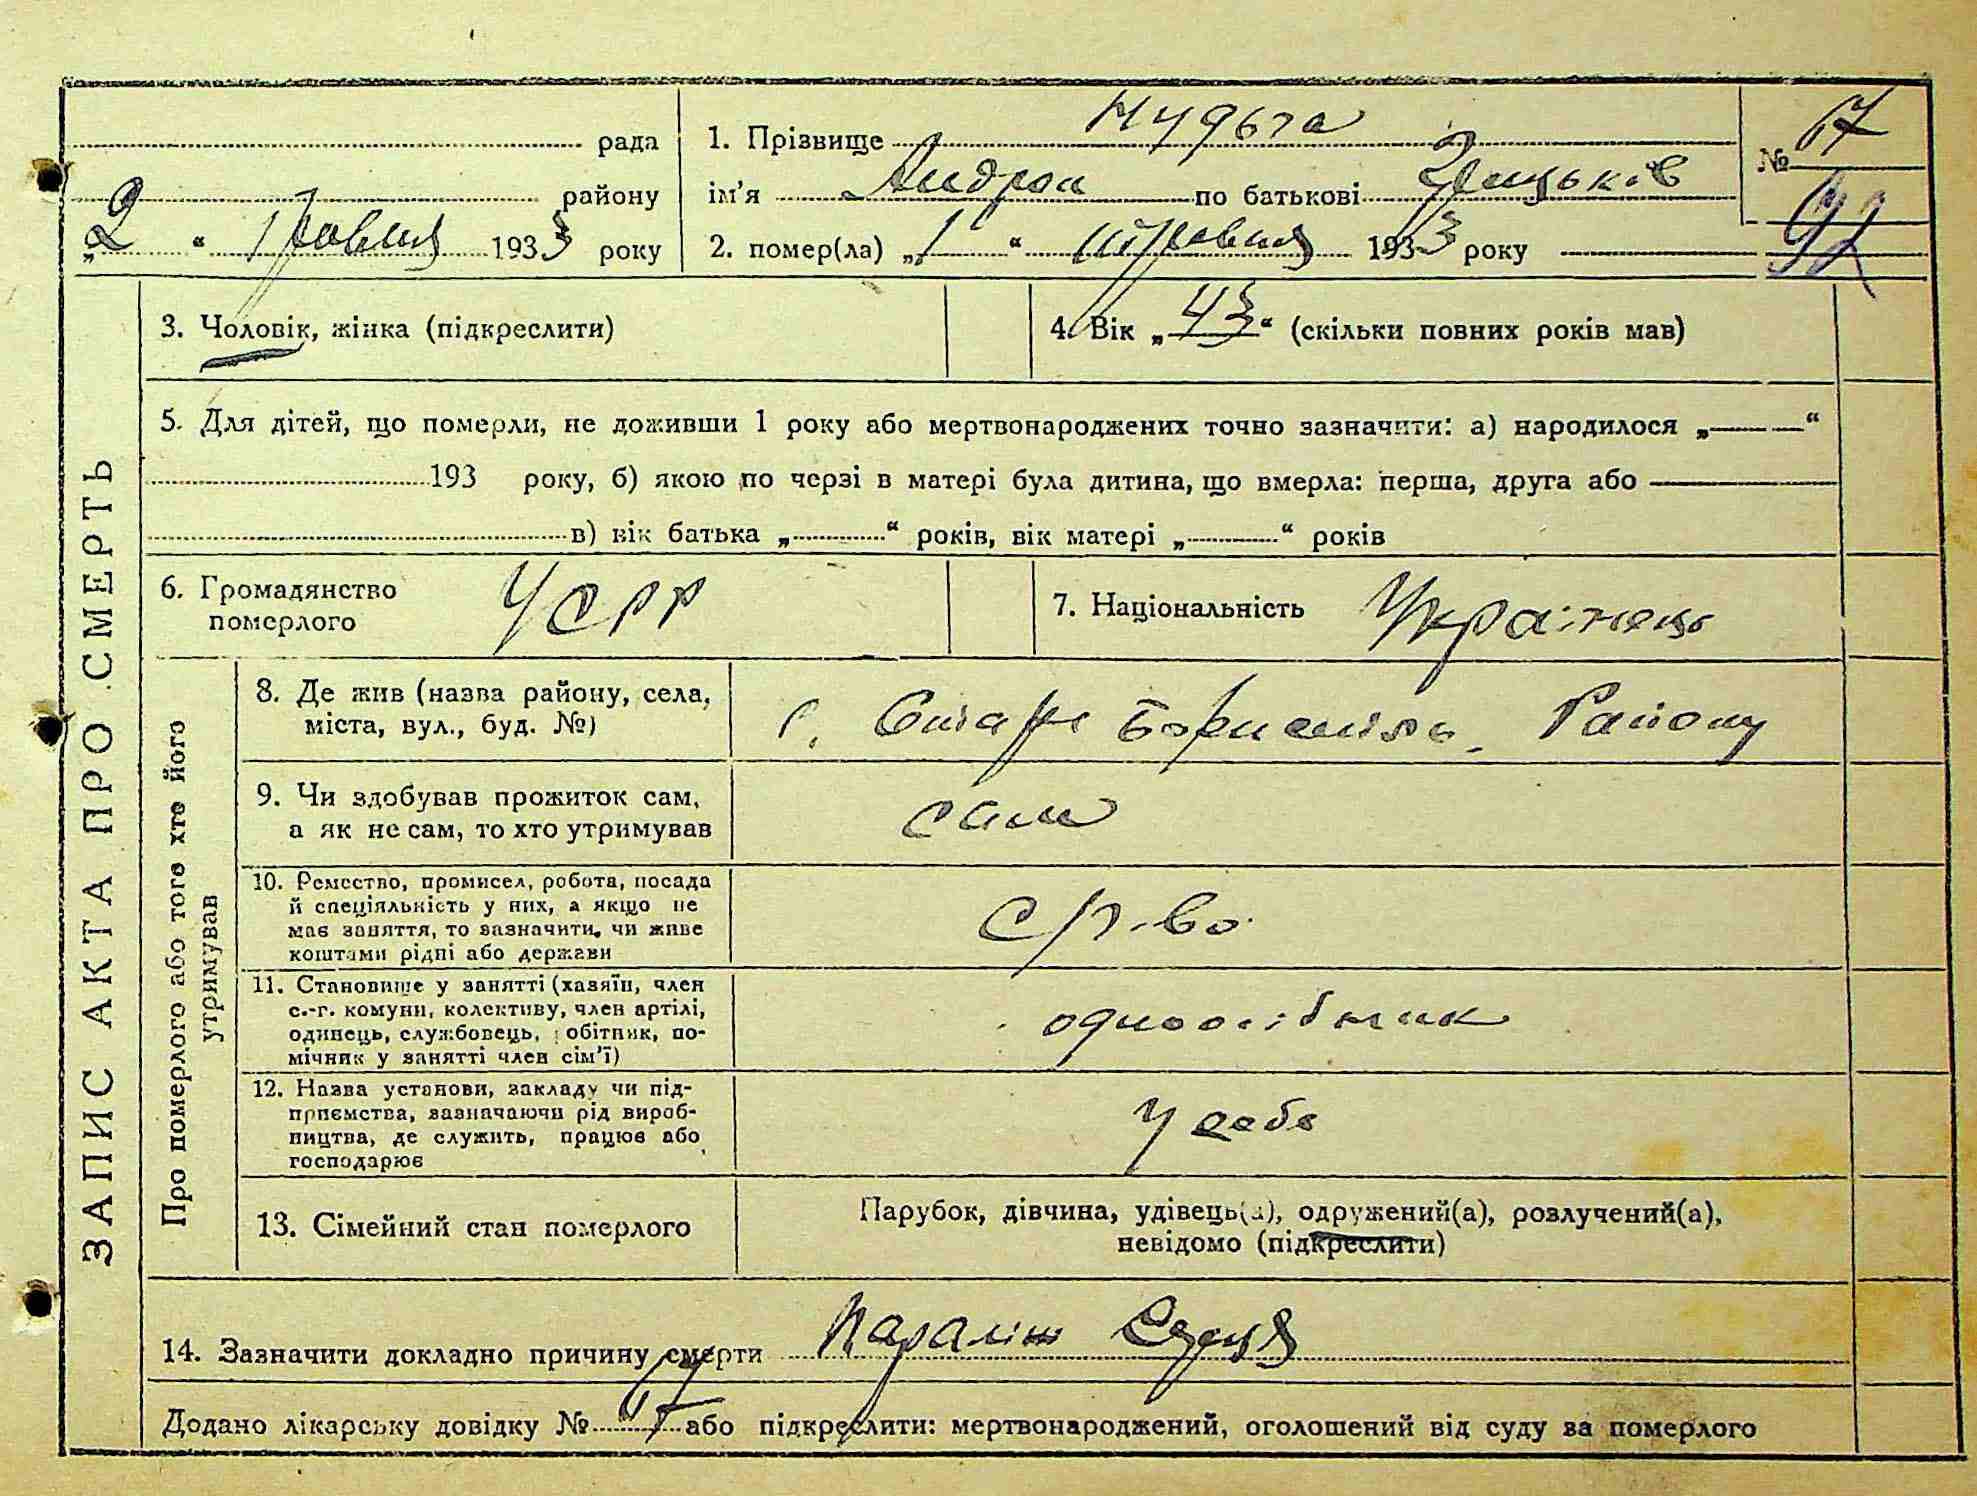 ЗАПИС АКТА ПРО СМЕРТЬ
рада
району
„2“ Травня 1933 року
1. Прізвище Нудьга
ім'я Андрон по батькові Грицьків
2. помер(ла) „1“ Травня 1933 року
№ 17
92
3. Чоловік, жінка (підкреслити)
4. Вік „43“ (скільки повних років мав)
5. Для дітей, що померли, не доживши 1 року або мертвонароджених точно зазначити: а) народилося „ “
193 року, б) якою по черзі в матері була дитина, що вмерла: перша, друга або
в) вік батька „ “ років, вік матері „ “ років
6. Громадянство
померлого
УСРР
7. Національність Українець
Про померлого або того хто його
утримував
8. Де жив (назва району, села,
міста, вул., буд. №)
с. Старе Бориспіль. Району
9. Чи здобував прожиток сам,
а як не сам, то хто утримував
сам
10. Ремество, промисел, робота, посада
й спеціяльність у них, а якщо не
має заняття, то зазначити, чи живе
коштами рідні або держави
11. Становище у занятті (хазяїн, член
с.-г. комуни, колективу, член артілі,
одинець, службовець, робітник, по-
мічник у занятті член сім'ї)
одноосібник
12. Назва установи, закладу чи під-
приємства, зазначаючи рід вироб-
ництва, де служить, працює або
господарює
У себе
13. Сімейний стан померлого
Парубок, дівчина, удівець(а), одружений(а), розлучений(а),
невідомо (підкреслити)
14. Зазначити докладно причину смерти Параліш Сердця
Додано лікарську довідку № або підкреслити: мертвонароджений, оголошений від суду за померлого